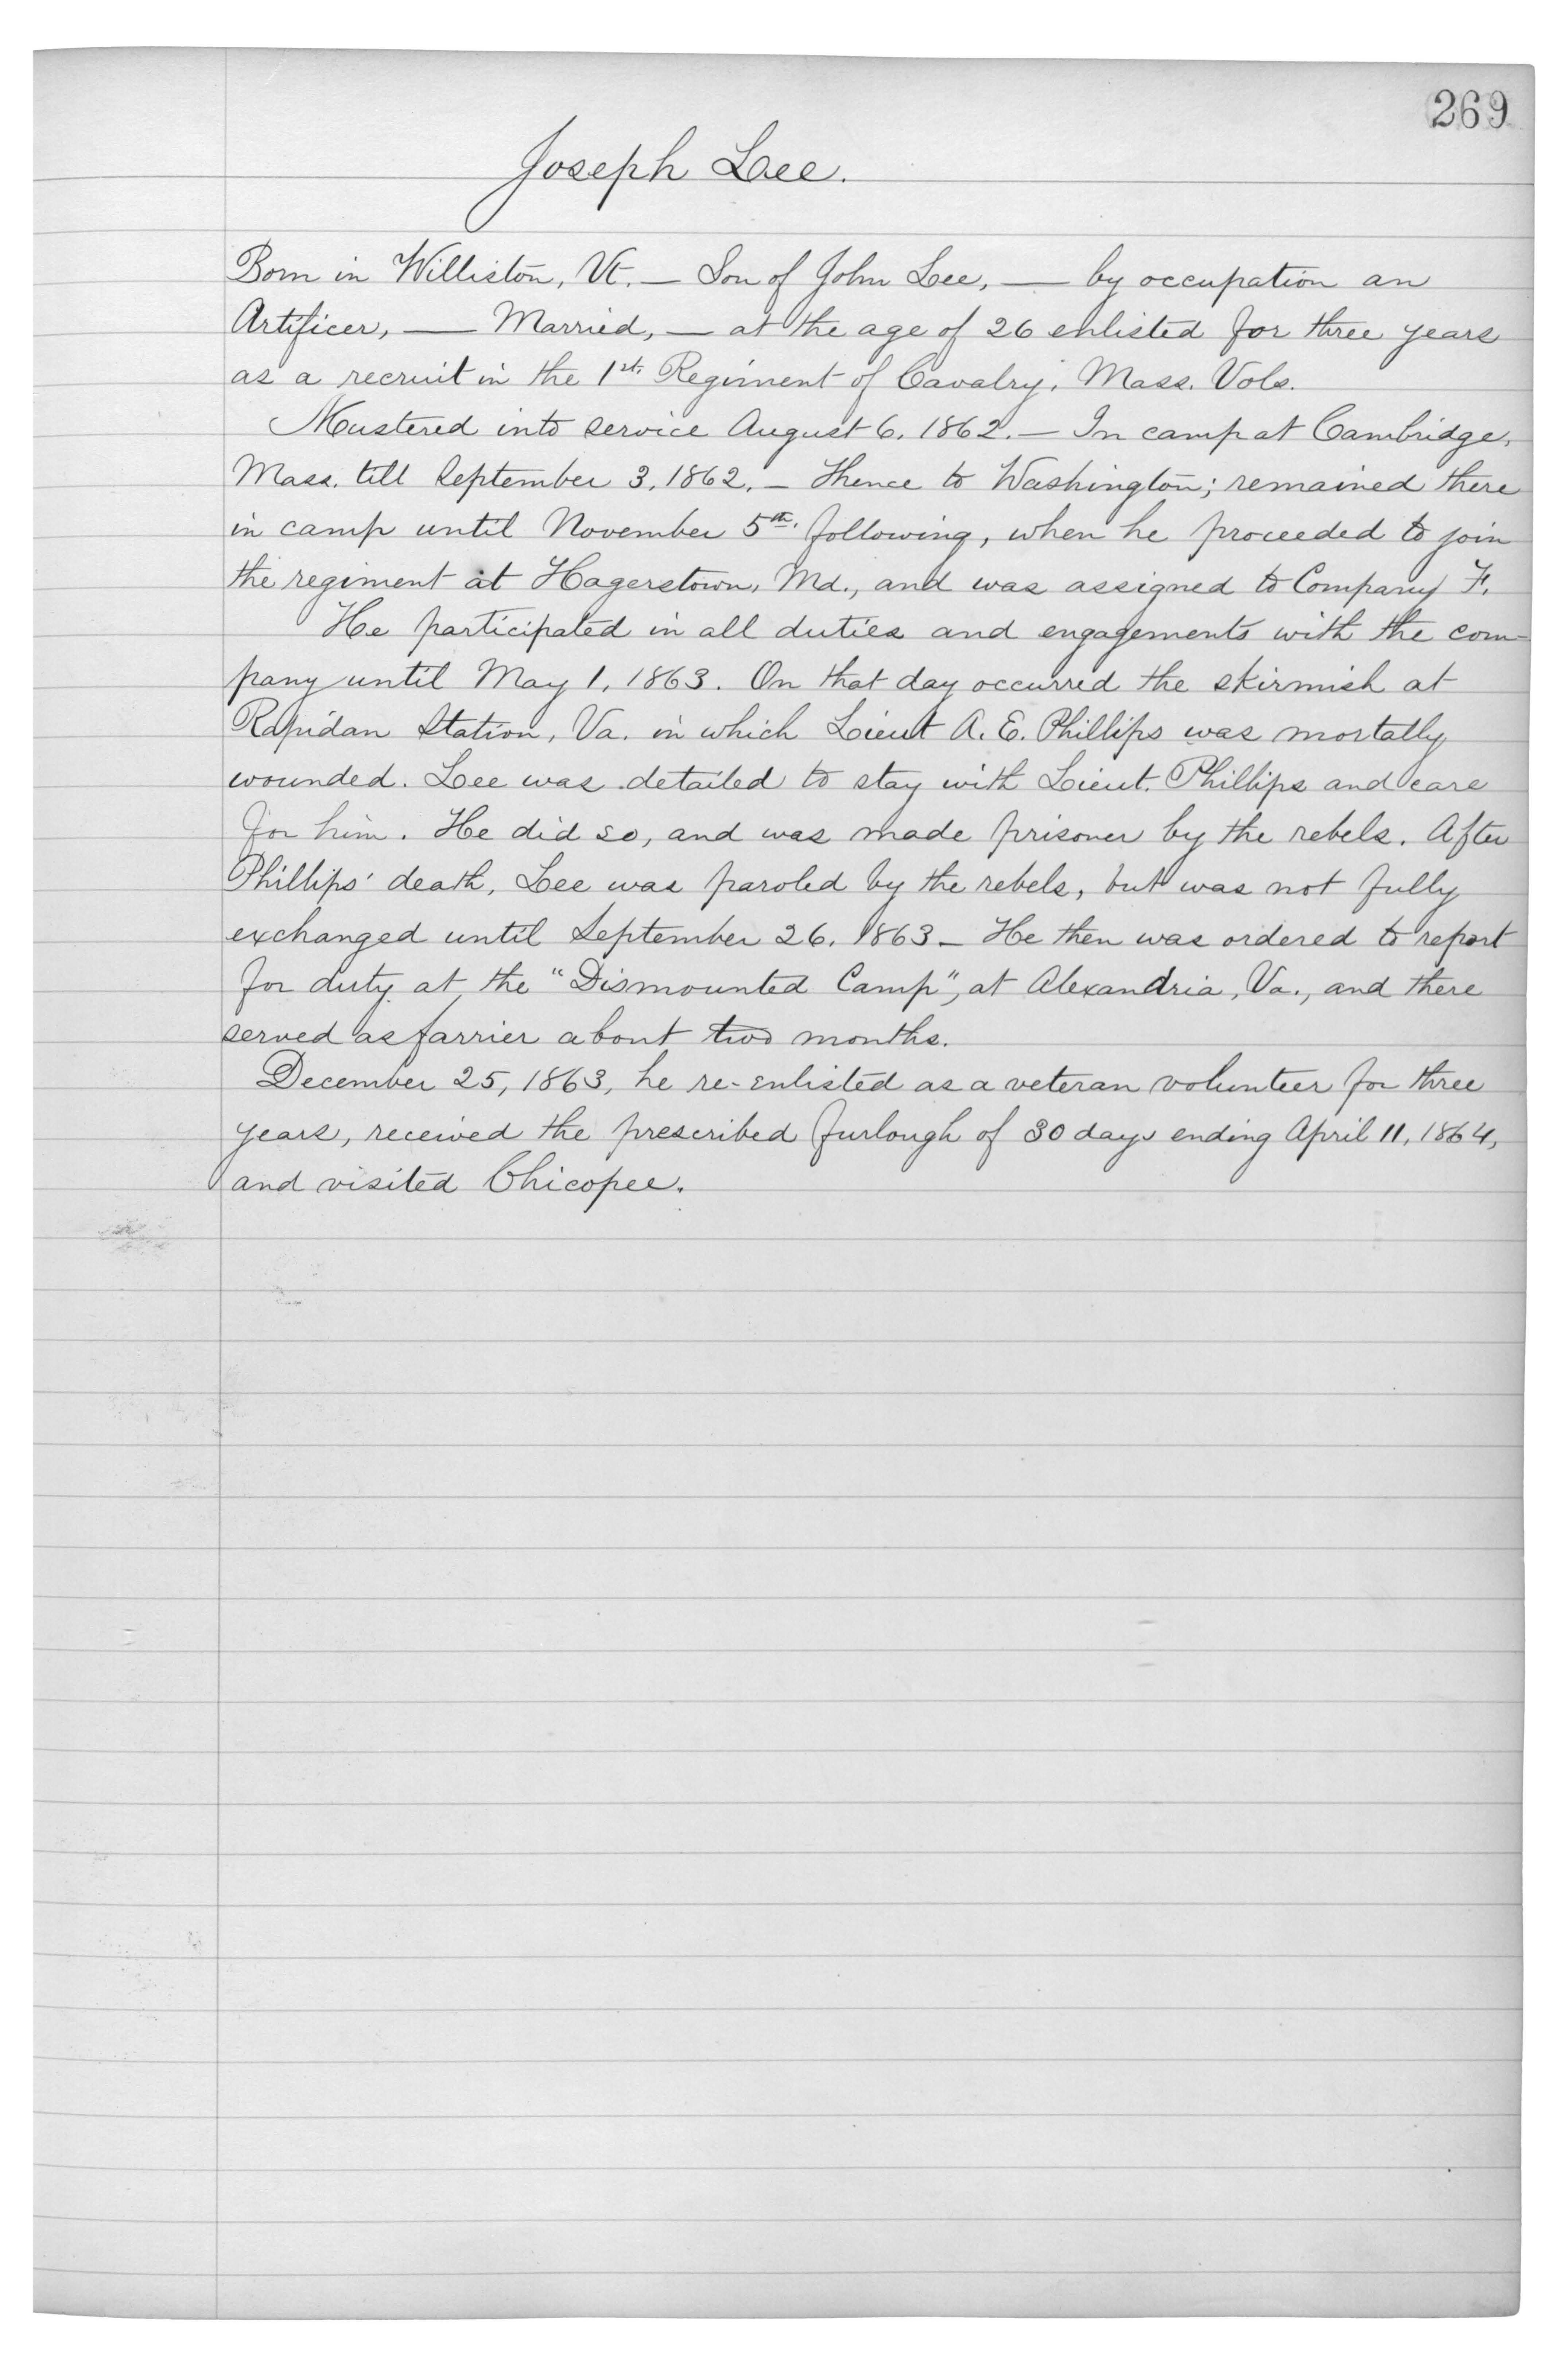 269
Joseph Lee.
Born in Williston, Vt. — Son of John Lee, — by occupation an
Artificer, — Married, — at the age of 26 enlisted for three years
as a recruit in the 1st. Regiment of Cavalry, Mass. Vols.
Mustered into service August 6, 1862. — In camp at Cambridge,
Mass. till September 3, 1862. — Thence to Washington; remained there
in camp until November 5th. following, when he proceeded to join
the regiment at Hagerstown, Md., and was assigned to Company F.
He participated in all duties and engagements with the com-
pany until May 1, 1863. On that day occurred the skirmish at
Rapidan Station, Va. in which Lieut A. E. Phillips was mortally
wounded. Lee was detailed to stay with Lieut. Phillips and care
for him. He did so, and was made prisoner by the rebels. After
Phillips' death, Lee was paroled by the rebels, but was not fully
exchanged until September 26, 1863 — He then was ordered to report
for duty at the "Dismounted Camp", at Alexandria, Va., and there
served as farrier about two months.
December 25, 1863, he re-enlisted as a veteran volunteer for three
years, received the prescribed furlough of 30 days ending April 11, 1864,
and visited Chicopee.